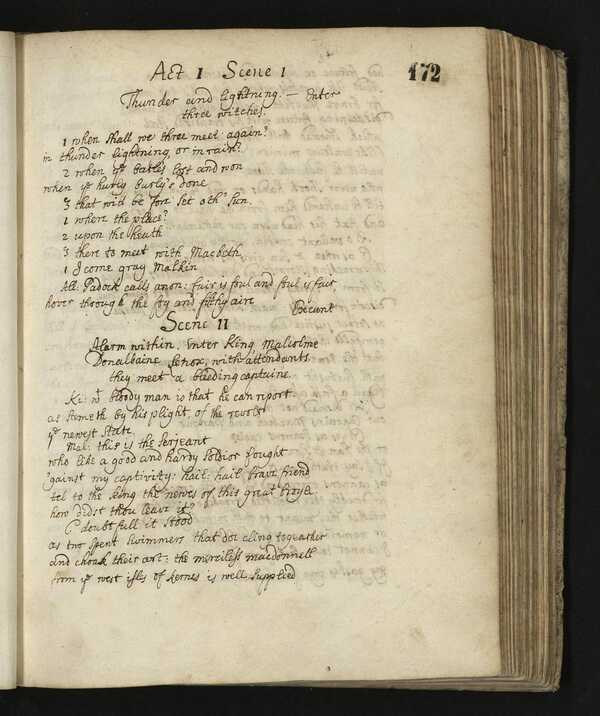 Act 1 Scene 1
172
Thunder and lightning. — Enter
three witches.
1 when shall we three meet again?
in thunder lightning or in rain?
2 when ye batles lost and won
when ye hurly burly's done
3 that wil be fore set oth' sun.
1 where the place?
2 upon the heath
3 there to meet with Macbeth
1 I come gray Malkin
All. Padock calls anon: fair is foul and foul is fair
hover through the fog and filthy aire
Exeunt
Scene II
Alarm within. Enter King, Malcolme
Donalbaine, Lenox, with attendants
they meet a bleeding captaine
Ki: wt bloody man is that he can report
as seemeth by his plight, of the revolt
ye newest state
Mal: this is the Serjeant
who like a good and hardy soldior fought
'gainst my captivity: hail: hail brave friend
tel to the king the
of this great
how didst thou leave it?
C doubtfull it stood
as two spent swimmers that doe cling together
and choak their art: the merciless macdonnell
from ye west isles of kernes is well supplied